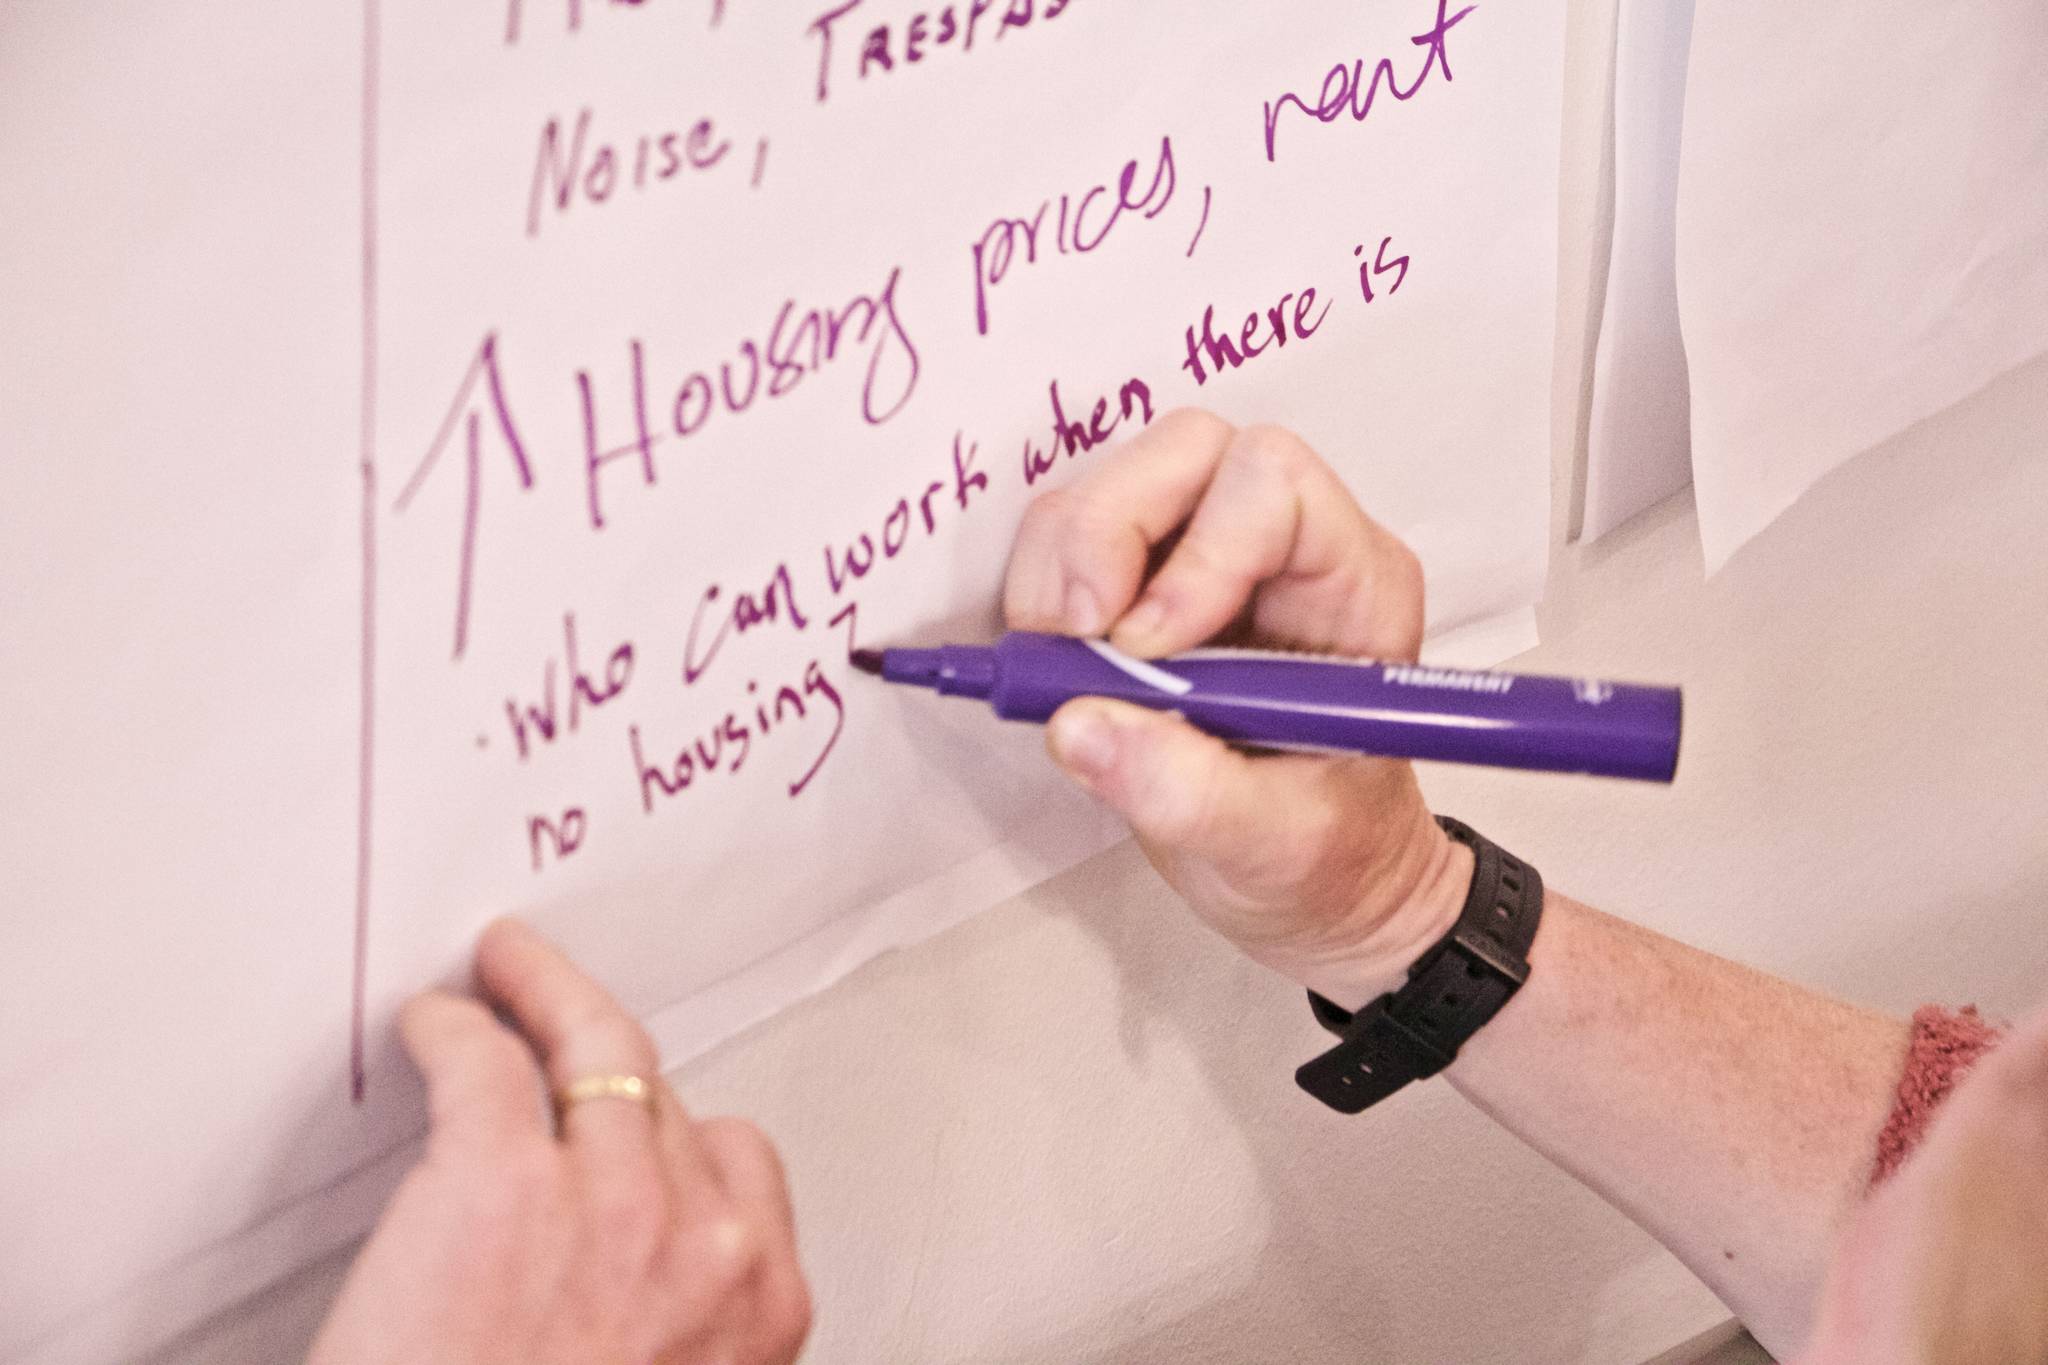 Noise, Trespass
↑ Housing prices, rent
· Who can work when there is
no housing?
PERMANENT